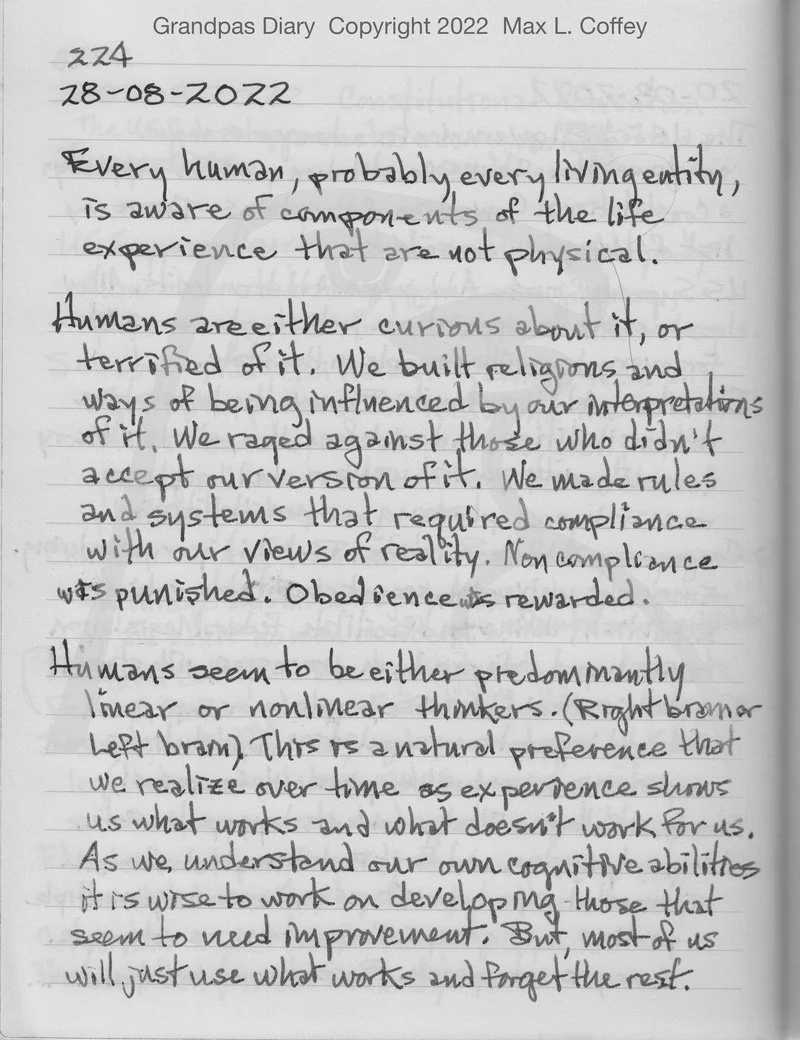 Grandpas Diary Copyright 2022 Max L. Coffey
224
28-08-2022
Every human, probably every living entity,
is aware of components of the life
experience that are not physical.
Humans are either curious about it, or
terrified of it. We built religions and
ways of being influenced by our interpretations
of it. We raged against those who didn't
accept our version of it. We made rules
and systems that required compliance
with our views of reality. Non compliance
was punished. Obedience was rewarded.
Humans seem to be either predominantly
linear or nonlinear thinkers. (Right brain or
Left brain). This is a natural preference that
we realize over time as experience shows
us what works and what doesn't work for us.
As we understand our own cognitive abilities
it is wise to work on developing those that
seem to need improvement. But, most of us
will just use what works and forget the rest.